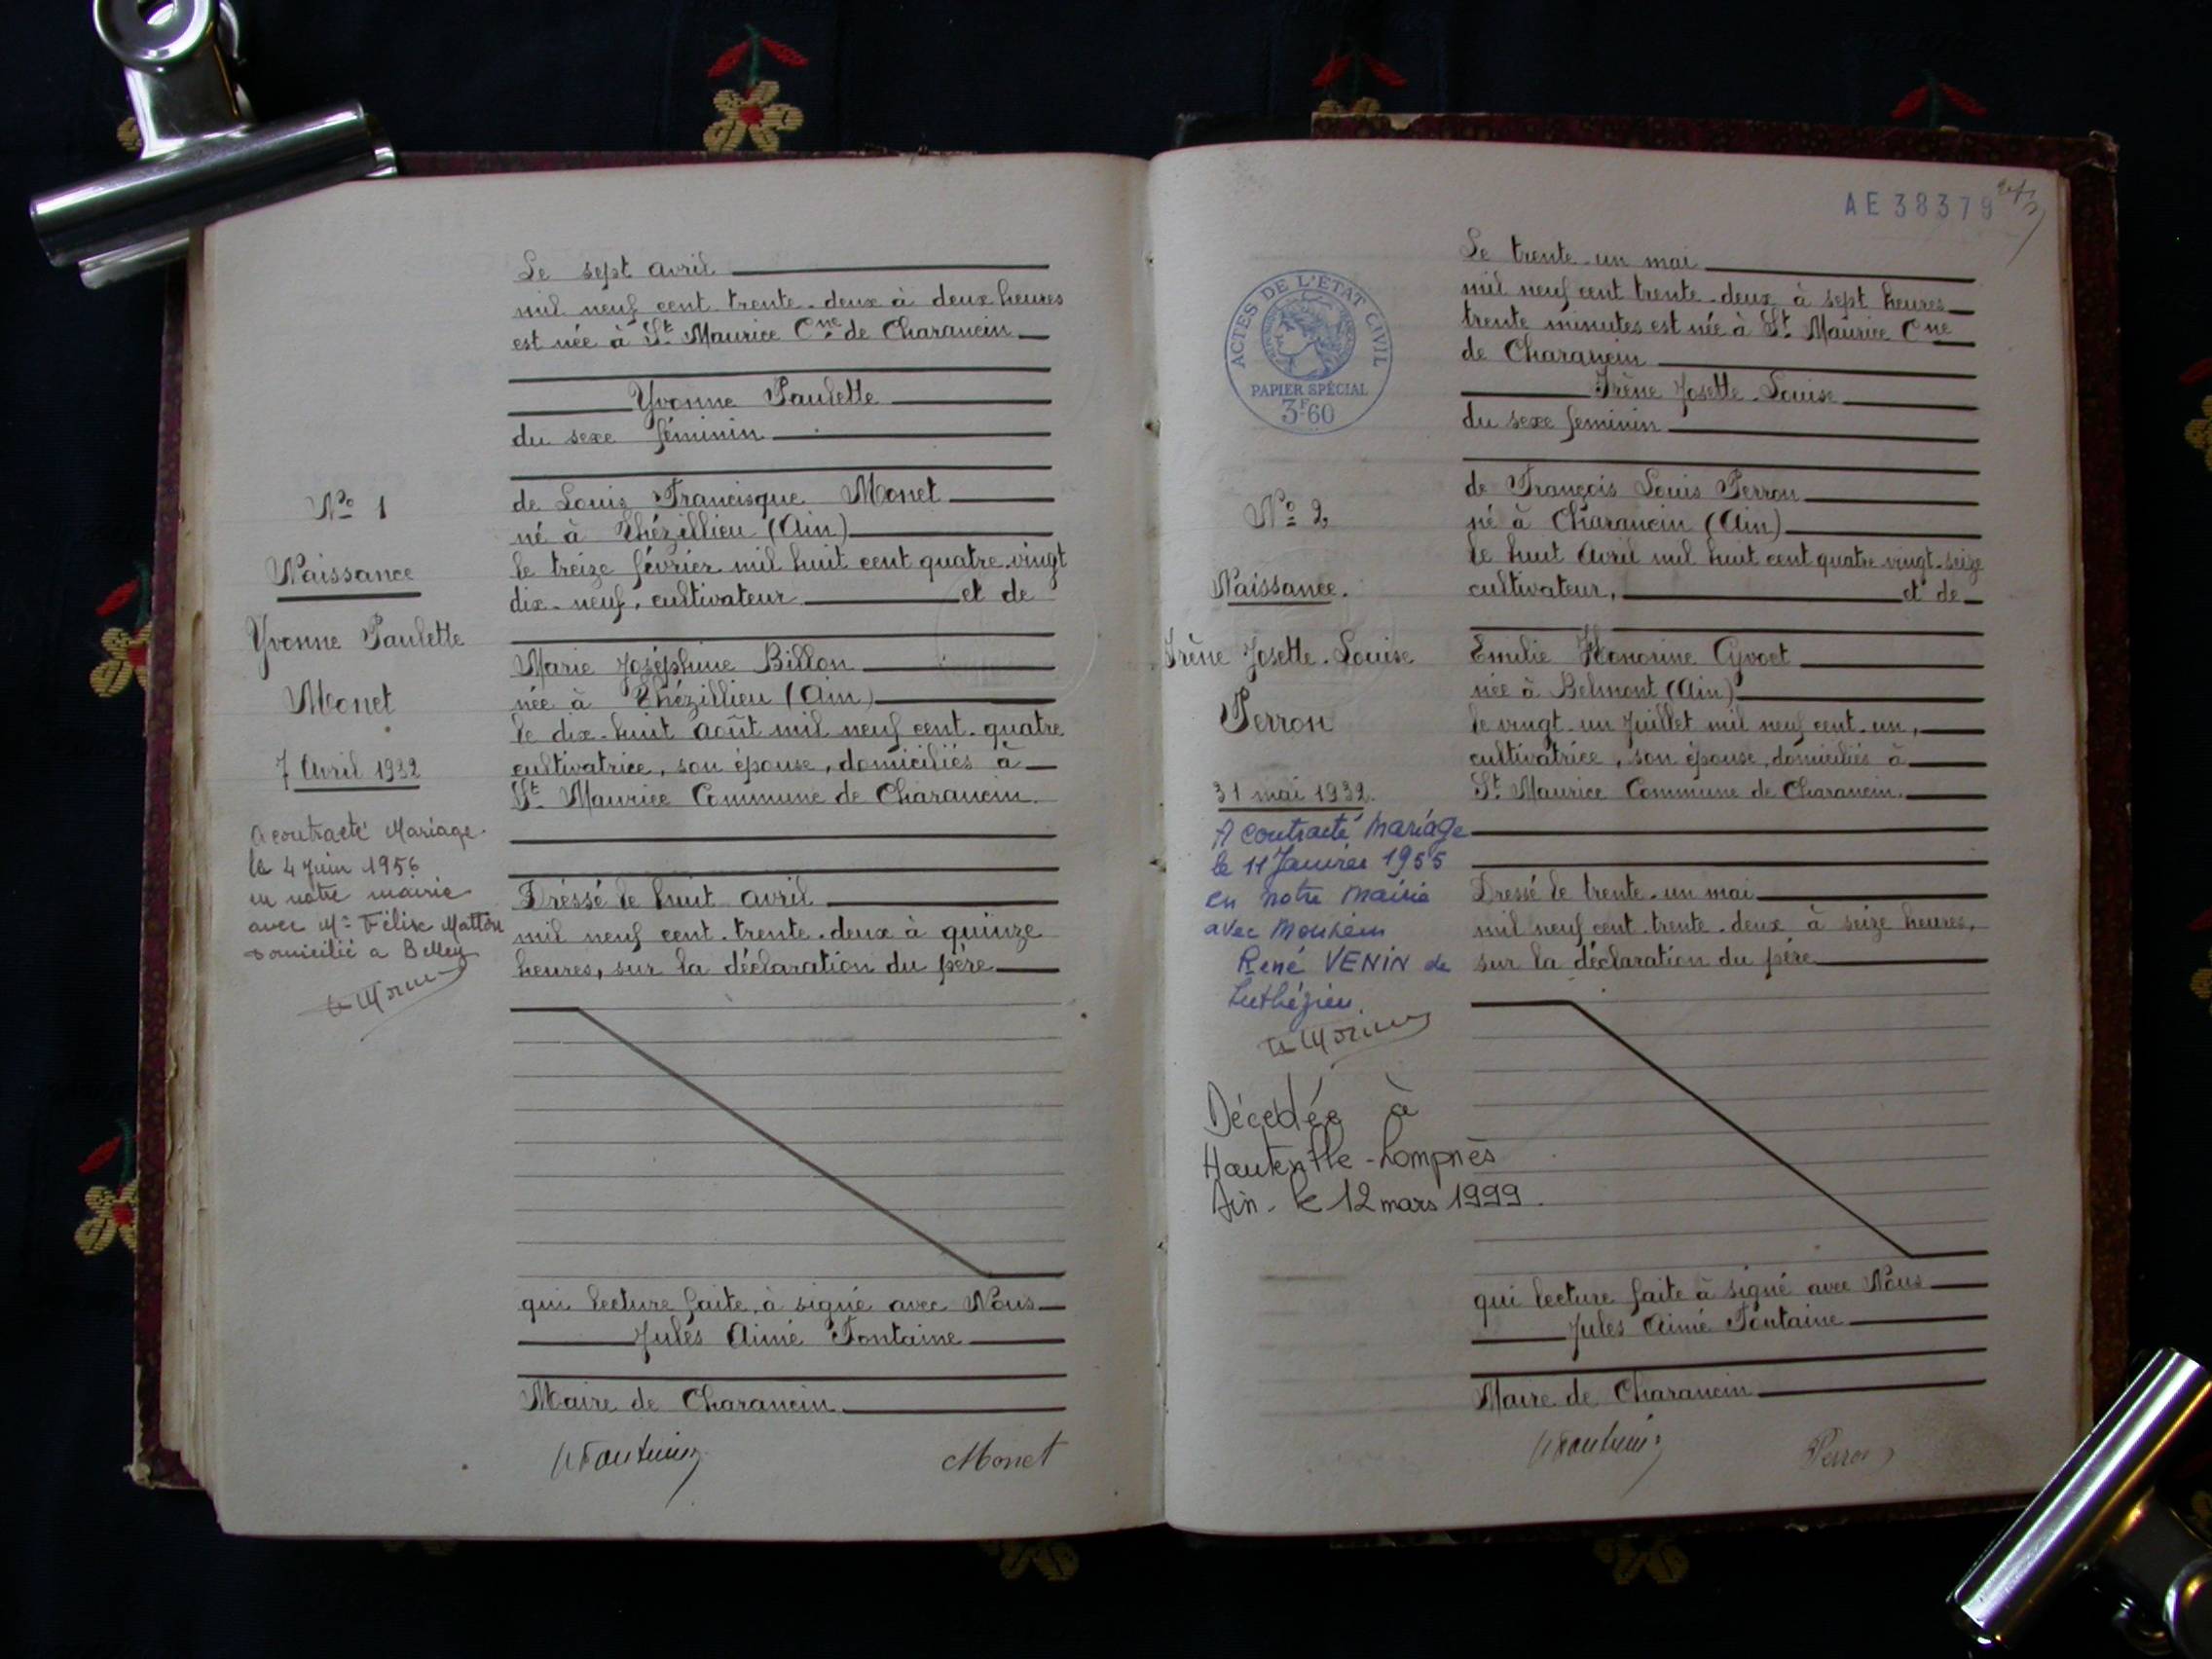 Le sept avril
mil neuf cent trente-deux à deux heures
est née à St. Maurice Cne de Charancin
Yvonne Paulette
du sexe féminin
de Louis Francisque Monet
né à Thézillieu (Ain)
le treize février mil huit cent quatre-vingt
dix-neuf, cultivateur et de
Marie Joséphine Billon
née à Thézillieu (Ain)
le dix-huit août mil neuf cent-quatre
cultivatrice, son épouse, domiciliés à
St. Maurice Commune de Charancin.
Dréssé le huit avril
mil neuf cent-trente-deux à quinze
heures, sur la déclaration du père
qui lecture faite, à signé avec Nous
Jules Aimé Fontaine
Maire de Charancin
Monet
No 1
Naissance
Yvonne Paulette
Monet
7 Avril 1932
A contracté Mariage
le 4 Juin 1956
en notre mairie
avec Mr Félix
domicilié a Belley
AE 38379
ACTES DE L'ÉTAT CIVIL
PAPIER SPÉCIAL
3F60
Le trente-un mai
mil neuf cent trente-deux à sept heures
trente minutes est née à St. Maurice Cne
de Charancin
Irène Josette-Louise
du sexe féminin
de François Louis Perron
né à Charancin (Ain)
le huit Avril mil huit cent quatre-vingt-seize
cultivateur, et de
Emilie Honorine Gyvoct
née à Belmont (Ain)
le vingt-un Juillet mil neuf cent-un,
cultivatrice, son épouse, domiciliés à
St. Maurice Commune de Charancin.
Dressé le trente-un mai
mil neuf cent-trente-deux à seize heures,
sur la déclaration du père
qui lecture faite à signé avec Nous
Jules Aimé Fontaine
Maire de Charancin
Perron
No 2
Naissance.
Irène Josette-Louise
Perron
31 mai 1932.
A contracté mariage
le 11 Janvier 1955
en notre mairie
avec Monsieur
René VENIN de
Luthézieu
Décédée à
Hauteville-Lompnès
Ain. le 12 mars 1999.